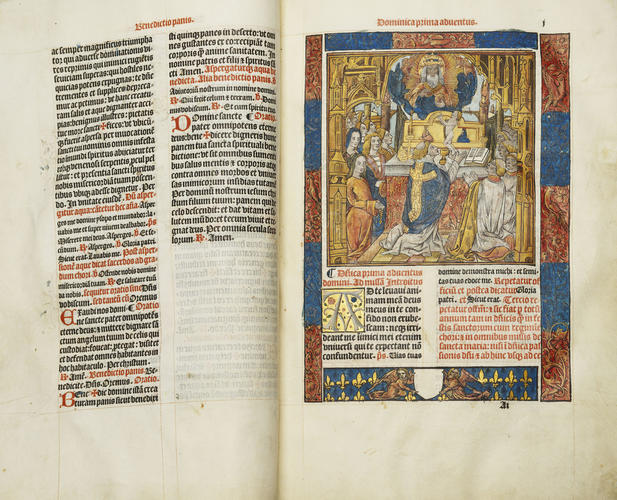 Benedictio panis.
ac semper magnificus triumpha
tor: qui aduerse dominationis vi
res reprimis: qui inimici rugientis
seuiciam superas: qui hostiles ne
quicias potens expugnas: te dñe
trementes et supplices depreca-
mur ac petimus: vt hanc creatu-
ram salis et aque dignanter acci-
pias: benignus illustres: pietatis
tue more sancti✠fices: vt vbicū-
qz fuerit aspersa per inuocationē
sancti tui nominis omnis infesta
tio immundi spiritus abiciatur: ter
rorqz venenosi serpentis peul pel
latur: et presentia sancti spiritus
nobis misericordiā tuam poscen-
tibus vbiqz adesse dignetur. Per
dom. In vnitate eiusdē.
Asper
ges me domine ysopo et mundabor: la-
uabis me et super niuem dealbabor. ps
Miserere mei deus. Asperges.
Gloria patri
Ostende nobis domine
misericordiā tuam. Et salutare tuum
da nobis.
Oremus
Oratio
Exaudi nos domine san
cte pater omnipotens eter
ne deus: et mittere digneris san
ctum angelum tuum de celis qui
custodiat: foueat: protegat: visitet
et defendat omnes habitantes in
hoc habitaculo. Per christum.
℟ Amē. Benedictio panis. Be-
nedicite. Dñs. Oremus. Oratio.
Bene✠dic domine istā crea
turam panis sicut benedixi
sti quinqz panes in deserto: vt om
nes gustantes ex eo: recipiāt tam
corporis qz anime sanitatem. In
nomine patris et filii et spiritus s
cti Amen. Aspergatur aqua be
nedicta. Alia benedictio panis. ℣.
Adiutorium nostrum in nomine domini.
℟ Qui fecit celum et terram. ℣. Domi
nus vobiscum. ℟ Et cum spiritu tuo
Oratio
Domine sancte
pater omnipotens eterne
deus: bene✠dicere digneris hunc
panem tua sancta spirituali bene
dictione: vt sit omnibus sumenti
bus salus mentis et corporis: atqz
contra omnes morbos et vniuer
sas inimicorum insidias tutamē
Per dominum nostrum iesum chri
stum filium tuum: panem qui de
celo descendit: et dat vitam et sa
lutem mūdo: et tecum viuit et re
gnat deus. Per omnia secula secu
lorum. ℟ Amen.
Dominica prima aduentus.
1
¶ Dñica prima aduentus
domini. Ad missā Introitus
AD te leuaui ani-
mam meā deus
meus in te con-
fido non erube-
scam: neqz irri-
deant me inimici mei etenim
vniuersi qui te expectant non
confundentur. ps. Uias tuas
domine demonstra michi: et semi-
tas tuas edoce me. Repetatur of
ficiū et postea dicatur Gloria
patri. et Sicut erat. Tercio re-
petatur offm̄: et sic fiat p̄ totū
annum tam in dñicis qz in fe-
stis sanctorum cum regimine
chori: in omnibus missis de
sancta maria: nisi i dñica pas
sionis dñi et ab hinc vsqz ad ce
Ai